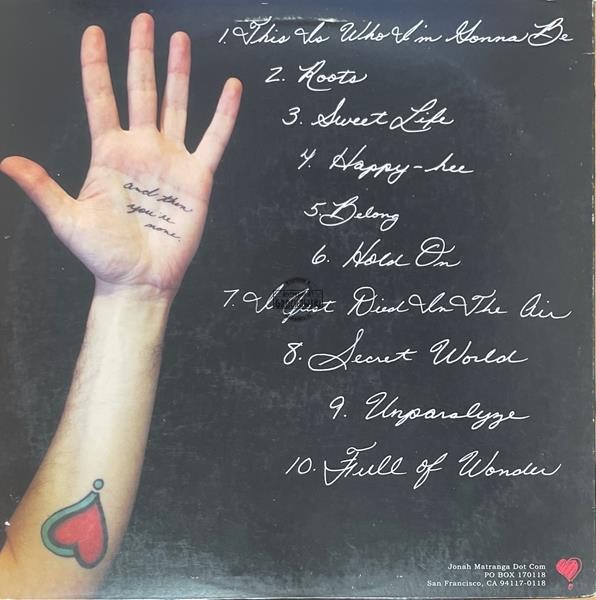 1. This Is Who I'm Gonna Be
2. Roots
3. Sweet Life
4. Happy-hee
5. Belong
6. Hold On
7. I Just Died In The Air
8. Secret World
9. Unparalyze
10. Full of Wonder
and then
you're
none.
Jonah Matranga Dot Com
PO BOX 170118
San Francisco, CA 94117-0118